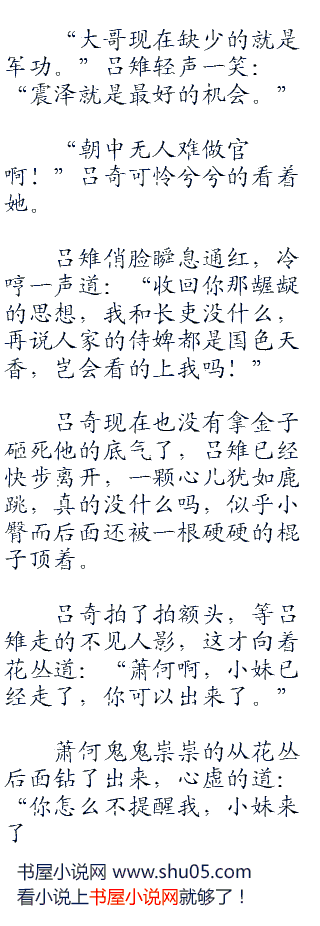 “大哥现在缺少的就是
军功。”吕雉轻声一笑：
“震泽就是最好的机会。”
“朝中无人难做官
啊！”吕奇可怜兮兮的看着
她。
吕雉俏脸瞬息通红，冷
哼一声道：“收回你那龌龊
的思想，我和长吏没什么，
再说人家的侍婢都是国色天
香，岂会看的上我吗！”
吕奇现在也没有拿金子
砸死他的底气了，吕雉已经
快步离开，一颗心儿犹如鹿
跳，真的没什么吗，似乎小
臀而后面还被一根硬硬的棍
子顶着。
吕奇拍了拍额头，等吕
雉走的不见人影，这才向着
花丛道：“萧何啊，小妹已
经走了，你可以出来了。”
萧何鬼鬼祟祟的从花丛
后面钻了出来，心虚的道：
“你怎么不提醒我，小妹来
了
书屋小说网 www.shu05.com
看小说上书屋小说网就够了！